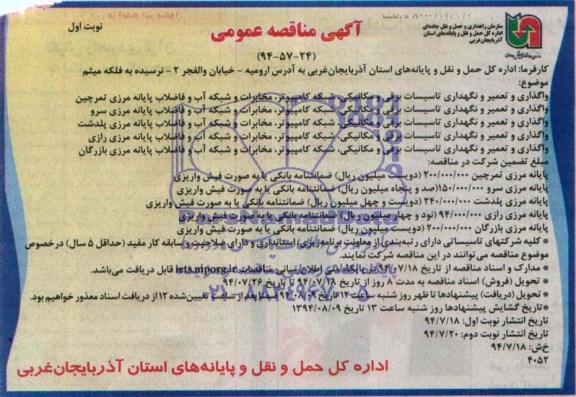 نوبت اول
آگهی مناقصه عمومی
(۹۴-۵۷-۲۴)
سازمان راهداری و حمل و نقل جاده‌ای
اداره کل حمل و نقل و پایانه‌های استان
آذربایجان‌غربی
کارفرما: اداره کل حمل و نقل و پایانه‌های استان آذربایجان‌غربی به آدرس ارومیه - خیابان والفجر ۲ - نرسیده به فلکه میثم
موضوع:
واگذاری و تعمیر و نگهداری تاسیسات برقی و مکانیکی، شبکه کامپیوتر، مخابرات و شبکه آب و فاضلاب پایانه مرزی تمرچین
واگذاری و تعمیر و نگهداری تاسیسات برقی و مکانیکی، شبکه کامپیوتر، مخابرات و شبکه آب و فاضلاب پایانه مرزی سرو
واگذاری و تعمیر و نگهداری تاسیسات برقی و مکانیکی، شبکه کامپیوتر، مخابرات و شبکه آب و فاضلاب پایانه مرزی پلدشت
واگذاری و تعمیر و نگهداری تاسیسات برقی و مکانیکی، شبکه کامپیوتر، مخابرات و شبکه آب و فاضلاب پایانه مرزی رازی
واگذاری و تعمیر و نگهداری تاسیسات برقی و مکانیکی، شبکه کامپیوتر، مخابرات و شبکه آب و فاضلاب پایانه مرزی بازرگان
مبلغ تضمین شرکت در مناقصه:
پایانه مرزی تمرچین ۲۰۰/۰۰۰/۰۰۰ (دویست میلیون ریال) ضمانتنامه بانکی یا به صورت فیش واریزی
پایانه مرزی سرو ۱۵۰/۰۰۰/۰۰۰(صد و پنجاه میلیون ریال) ضمانتنامه بانکی یا به صورت فیش واریزی
پایانه مرزی پلدشت ۲۴۰/۰۰۰/۰۰۰ (دویست و چهل میلیون ریال) ضمانتنامه بانکی یا به صورت فیش واریزی
پایانه مرزی رازی ۹۴/۰۰۰/۰۰۰ (نود و چهار میلیون ریال) ضمانتنامه بانکی یا به صورت فیش واریزی
پایانه مرزی بازرگان ۲۰۰/۰۰۰/۰۰۰ (دویست میلیون ریال) ضمانتنامه بانکی یا به صورت فیش واریزی
* کلیه شرکتهای تاسیساتی دارای رتبه‌بندی از معاونت برنامه‌ریزی استانداری و دارای صلاحیت و سابقه کار مفید (حداقل ۵ سال) درخصوص
موضوع مناقصه می‌توانند در این مناقصه شرکت نمایند.
* مدارک و اسناد مناقصه از تاریخ ۹۴/۰۷/۱۸ در پایگاه ملی اطلاع‌رسانی مناقصات iets.mporg.ir قابل دریافت می‌باشد.
* تحویل (فروش) اسناد مناقصه به مدت ۸ روز از تاریخ ۹۴/۰۷/۱۸ تا تاریخ ۹۴/۰۷/۲۶
* تحویل (دریافت) پیشنهادها تا ظهر روز شنبه ساعت ۱۲ تاریخ ۹۴/۰۸/۰۹ بعد از ساعت تعیین‌شده ۱۲ از دریافت اسناد معذور خواهیم بود.
* تاریخ گشایش پیشنهادها روز شنبه ساعت ۱۳ تاریخ ۱۳۹۴/۰۸/۰۹
تاریخ انتشار نوبت اول: ۹۴/۷/۱۸
تاریخ انتشار نوبت دوم: ۹۴/۷/۲۰
خ‌ش: ۹۴/۷/۱۸
۴۰۵۲
اداره کل حمل و نقل و پایانه‌های استان آذربایجان‌غربی
۰۲۱-۸۸۳۴۹۶۷۰-۵